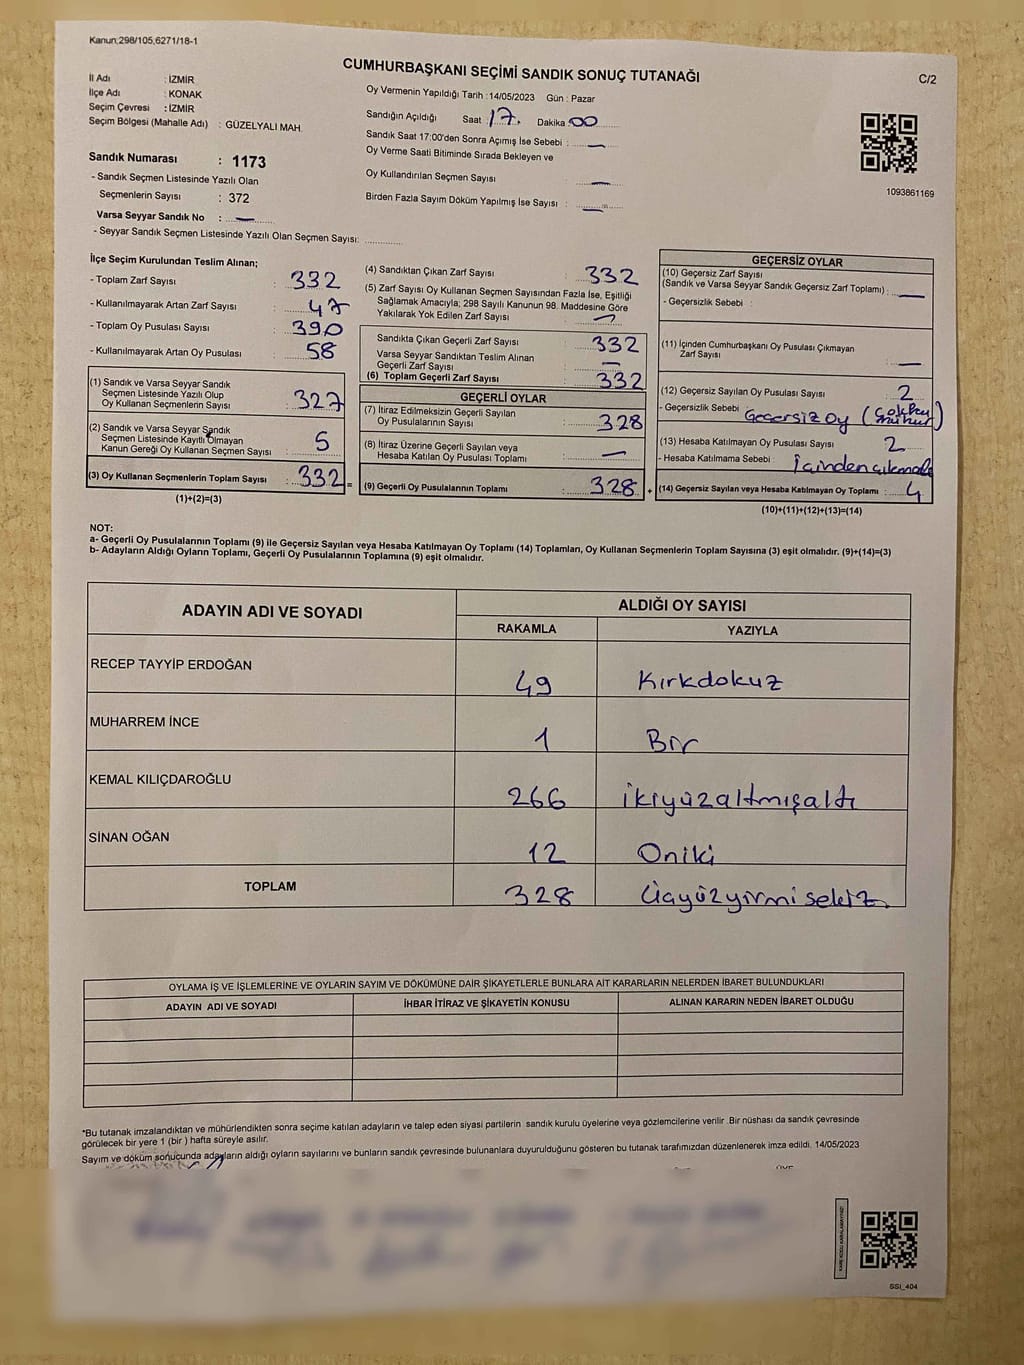 Kanun;298/105,6271/18-1
CUMHURBAŞKANI SEÇİMİ SANDIK SONUÇ TUTANAĞI
C/2
İl Adı : İZMİR
İlçe Adı : KONAK
Seçim Çevresi : İZMİR
Seçim Bölgesi (Mahalle Adı) : GÜZELYALI MAH.
Sandık Numarası : 1173
- Sandık Seçmen Listesinde Yazılı Olan
Seçmenlerin Sayısı : 372
Varsa Seyyar Sandık No : —
- Seyyar Sandık Seçmen Listesinde Yazılı Olan Seçmen Sayısı:
Oy Vermenin Yapıldığı Tarih :14/05/2023 Gün : Pazar
Sandığın Açıldığı Saat : 17. Dakika : 00
Sandık Saat 17:00'den Sonra Açımış İse Sebebi : —
Oy Verme Saati Bitiminde Sırada Bekleyen ve
Oy Kullandırılan Seçmen Sayısı : —
Birden Fazla Sayım Döküm Yapılmış İse Sayısı : —
1093861169
İlçe Seçim Kurulundan Teslim Alınan;
- Toplam Zarf Sayısı : 332
- Kullanılmayarak Artan Zarf Sayısı : 47
- Toplam Oy Pusulası Sayısı : 390
- Kullanılmayarak Artan Oy Pusulası : 58
(1) Sandık ve Varsa Seyyar Sandık
Seçmen Listesinde Yazılı Olup
Oy Kullanan Seçmenlerin Sayısı : 327
(2) Sandık ve Varsa Seyyar Sandık
Seçmen Listesinde Kayıtlı Olmayan
Kanun Gereği Oy Kullanan Seçmen Sayısı : 5
(3) Oy Kullanan Seçmenlerin Toplam Sayısı : 332 =
(1)+(2)=(3)
(4) Sandıktan Çıkan Zarf Sayısı : 332
(5) Zarf Sayısı Oy Kullanan Seçmen Sayısından Fazla İse, Eşitliği
Sağlamak Amacıyla; 298 Sayılı Kanunun 98. Maddesine Göre
Yakılarak Yok Edilen Zarf Sayısı : —
Sandıkta Çıkan Geçerli Zarf Sayısı : 332
Varsa Seyyar Sandıktan Teslim Alınan
Geçerli Zarf Sayısı : —
(6) Toplam Geçerli Zarf Sayısı : 332
GEÇERLİ OYLAR
(7) İtiraz Edilmeksizin Geçerli Sayılan
Oy Pusulalarının Sayısı : 328
(8) İtiraz Üzerine Geçerli Sayılan veya
Hesaba Katılan Oy Pusulası Toplamı : —
(9) Geçerli Oy Pusulalarının Toplamı : 328 +
GEÇERSİZ OYLAR
(10) Geçersiz Zarf Sayısı
(Sandık ve Varsa Seyyar Sandık Geçersiz Zarf Toplamı) : —
- Geçersizlik Sebebi :
(11) İçinden Cumhurbaşkanı Oy Pusulası Çıkmayan
Zarf Sayısı : —
(12) Geçersiz Sayılan Oy Pusulası Sayısı : 2
- Geçersizlik Sebebi : Geçersiz oy
(13) Hesaba Katılmayan Oy Pusulası Sayısı : 2
- Hesaba Katılmama Sebebi : İçinden
(14) Geçersiz Sayılan veya Hesaba Katılmayan Oy Toplamı : 4
(10)+(11)+(12)+(13)=(14)
NOT:
a- Geçerli Oy Pusulalarının Toplamı (9) ile Geçersiz Sayılan veya Hesaba Katılmayan Oy Toplamı (14) Toplamları, Oy Kullanan Seçmenlerin Toplam Sayısına (3) eşit olmalıdır. (9)+(14)=(3)
b- Adayların Aldığı Oyların Toplamı, Geçerli Oy Pusulalarının Toplamına (9) eşit olmalıdır.
ADAYIN ADI VE SOYADI ALDIĞI OY SAYISI
RAKAMLA YAZIYLA
RECEP TAYYİP ERDOĞAN 49 Kırkdokuz
MUHARREM İNCE 1 Bir
KEMAL KILIÇDAROĞLU 266 ikiyüzaltmışaltı
SİNAN OĞAN 12 Oniki
TOPLAM 328 Üçyüzyirmisekiz
OYLAMA İŞ VE İŞLEMLERİNE VE OYLARIN SAYIM VE DÖKÜMÜNE DAİR ŞİKAYETLERLE BUNLARA AİT KARARLARIN NELERDEN İBARET BULUNDUKLARI
ADAYIN ADI VE SOYADI İHBAR İTİRAZ VE ŞİKAYETİN KONUSU ALINAN KARARIN NEDEN İBARET OLDUĞU
*Bu tutanak imzalandıktan ve mühürlendikten sonra seçime katılan adayların ve talep eden siyasi partilerin sandık kurulu üyelerine veya gözlemcilerine verilir. Bir nüshası da sandık çevresinde
görülecek bir yere 1 (bir ) hafta süreyle asılır.
Sayım ve döküm sonucunda adayların aldığı oyların sayılarını ve bunların sandık çevresinde bulunanlara duyurulduğunu gösteren bu tutanak tarafımızdan düzenlenerek imza edildi. 14/05/2023
KARE KODU KARALAMAYINIZ!
SSI_404